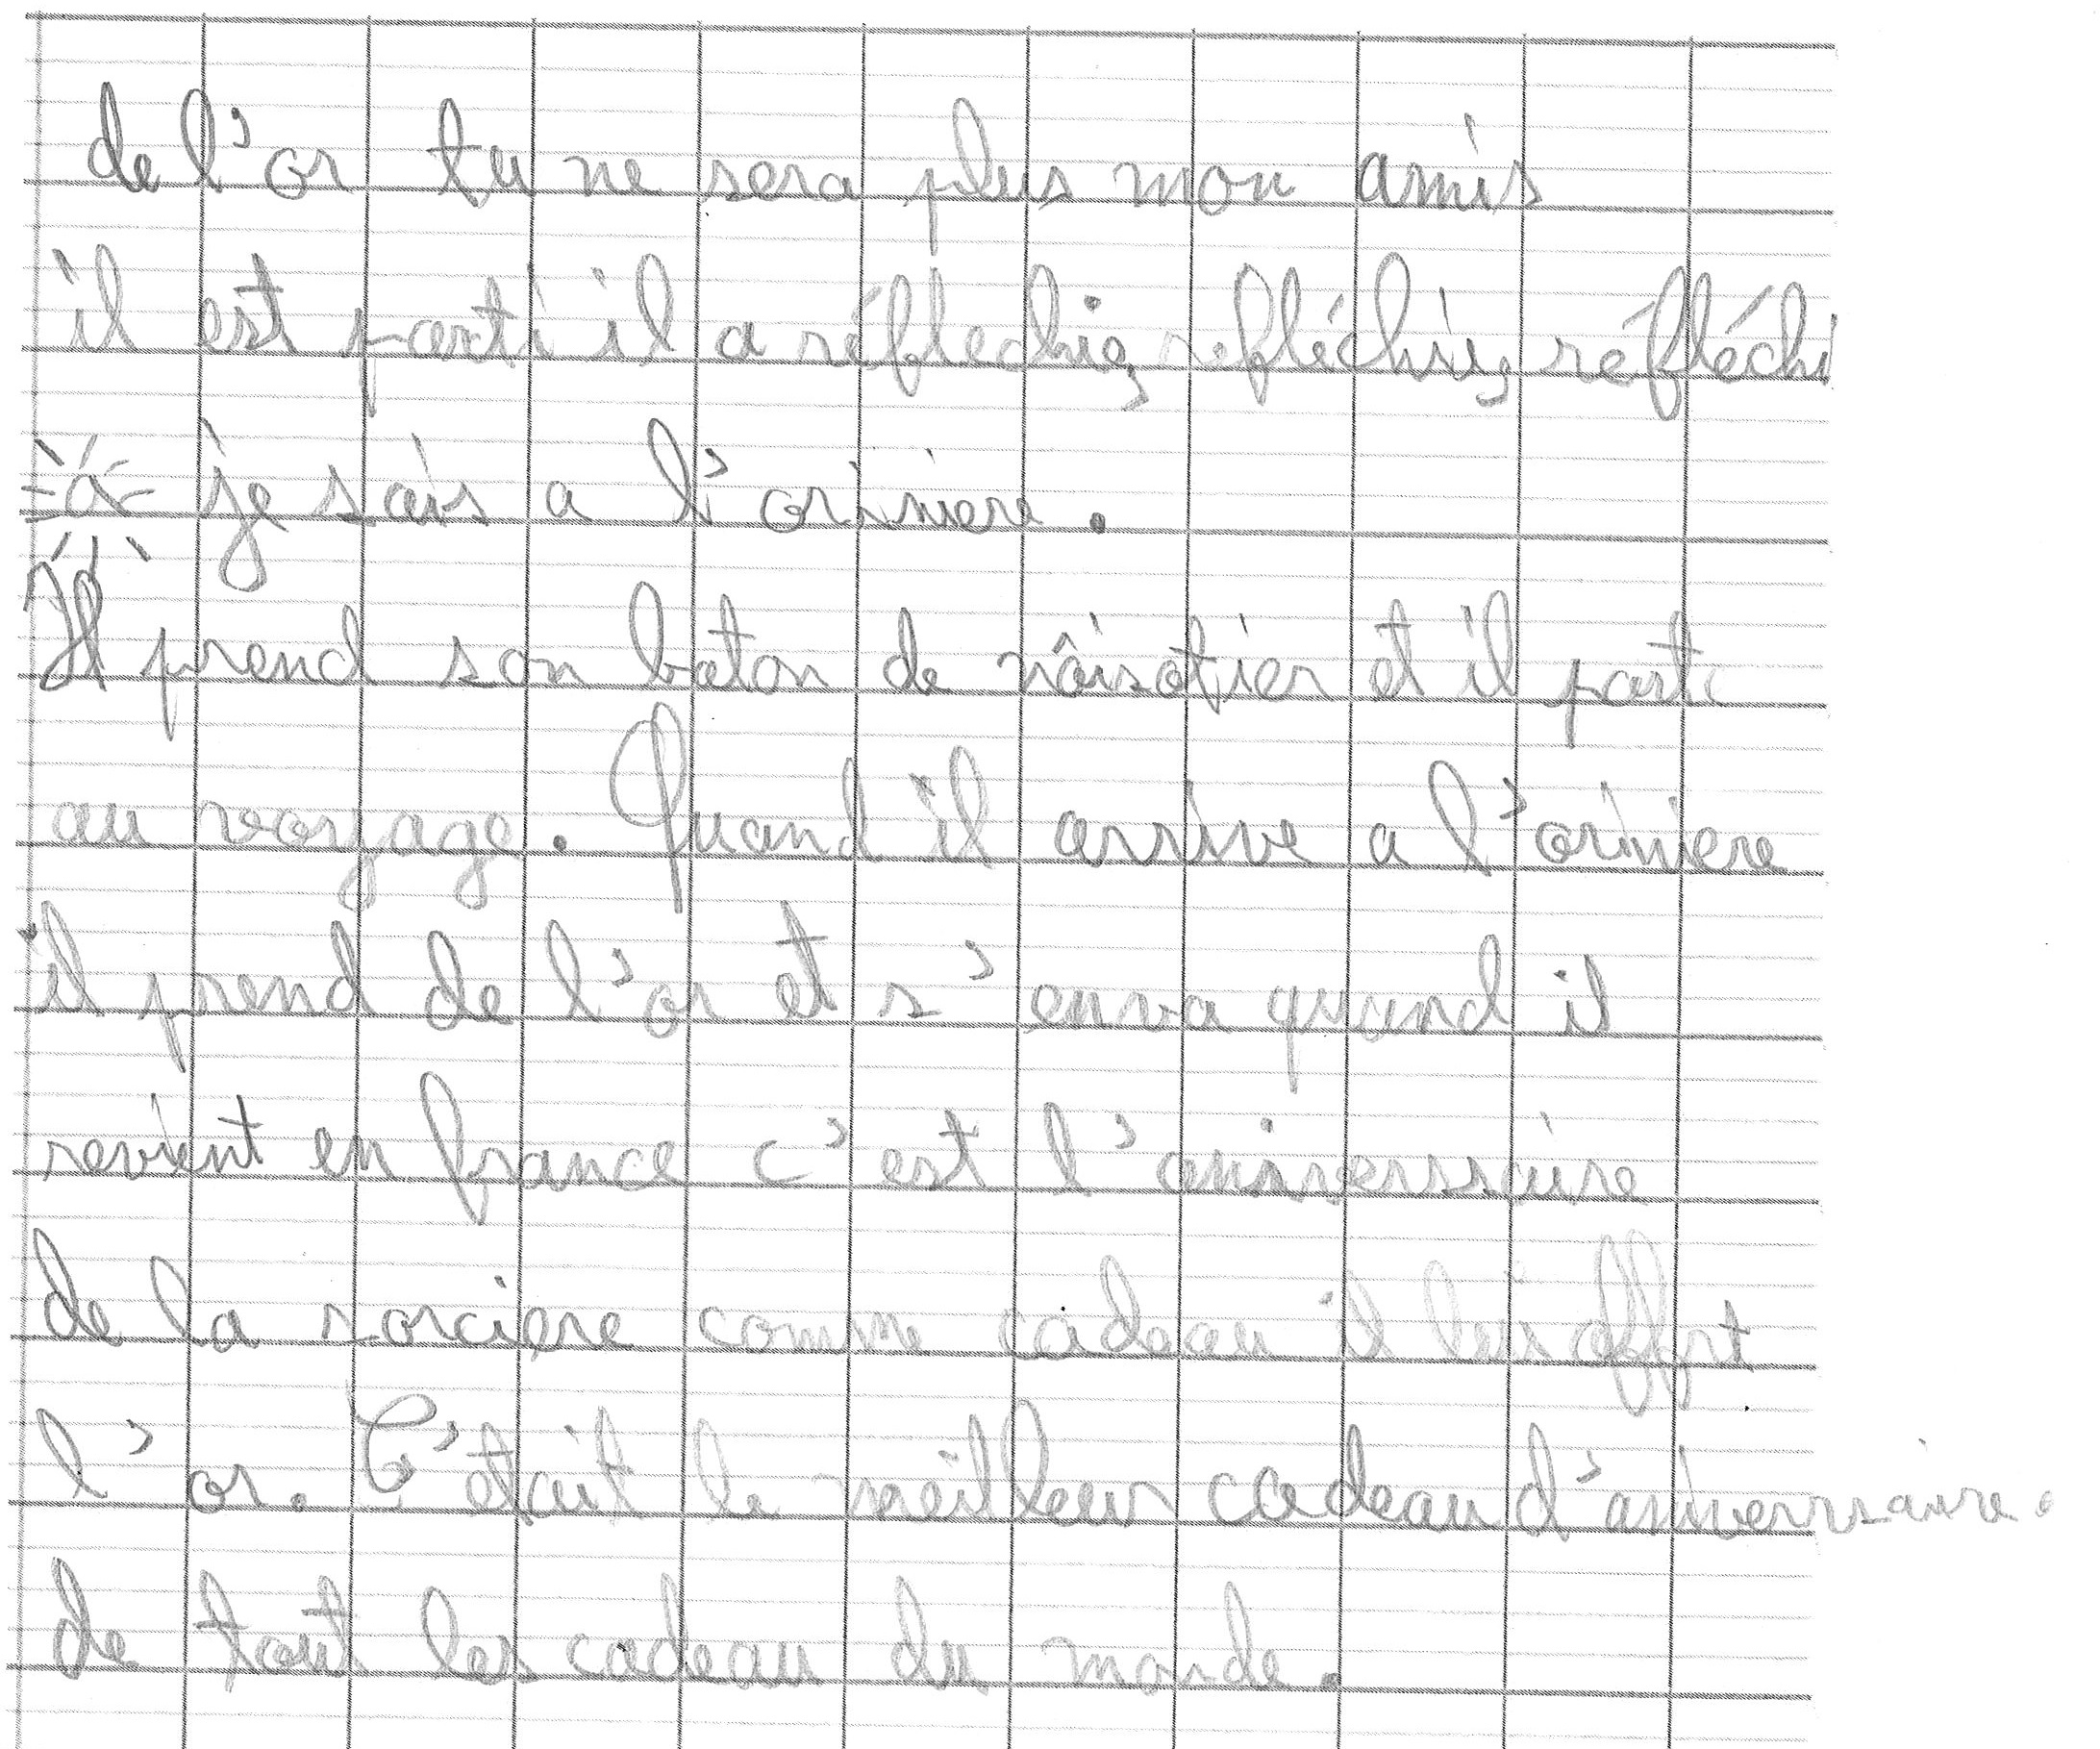 de l'or tu ne sera plus mon amis
il est parti il a réflechie, refléchie, réfléchi
a je sais a l'oriniere.
Il prend son baton de nôisotier et il parti
au voyage. Quand il arrive a l'oriniere
il prend de l'or et s'enva quand il
revient en france c'est l'aniverssaire
de la sorciere comme cadeau il lui offrt
l'or. C'était le meilleur cadeau d'aniverssaire.
de tout les cadeau du monde.